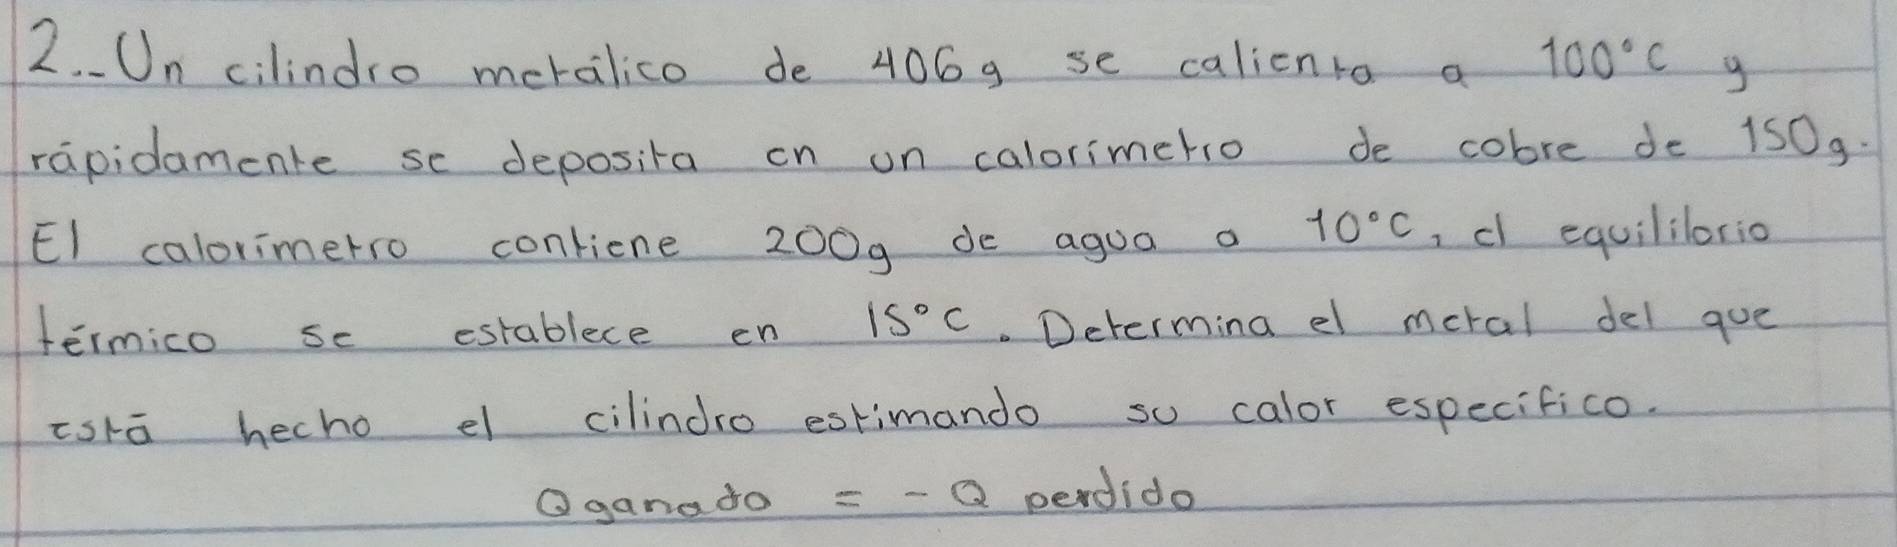 2.- Un cilindro metálico de 406g se calienta a 100°C y
rápidamente se deposita en un calorímetro de cobre de 150g.
El calorímetro contiene 200g de agua a 10°C, el equilibrio
térmico se establece en 15°C. Determina el metal del que
está hecho el cilindro estimando su calor específico.
Qganado = - Q perdido